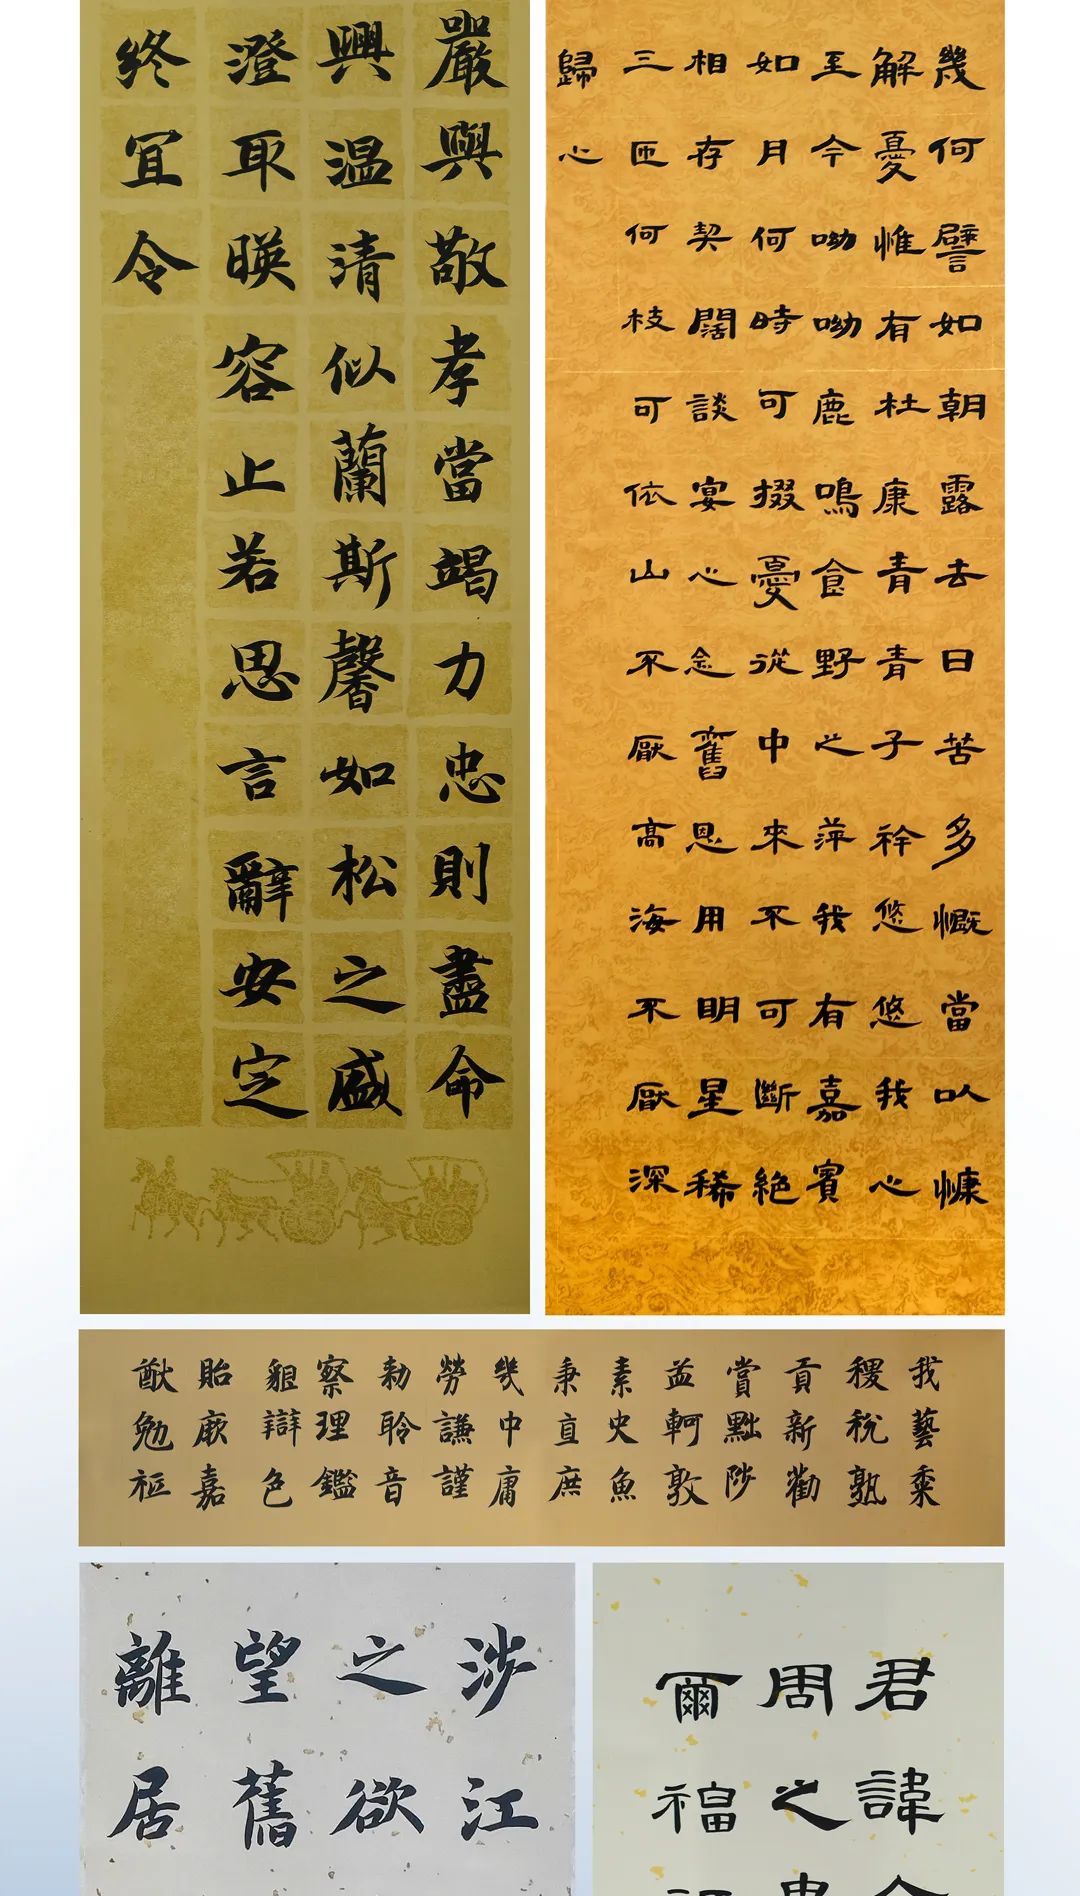 幾何譬如朝露去日苦多慨當以慷
解憂惟有杜康青青子衿悠悠我心
至今呦呦鹿鳴食野之萍我有嘉賓
如月何時可掇憂從中來不可斷絕
相存契闊談宴心念舊恩用明星稀
三匝何枝可依山不厭高海不厭深
歸心
嚴與敬孝當竭力忠則盡命
興温清似蘭斯馨如松之盛
澄取暎容止若思言辭安定
終宜令
我藝黍
稷稅熟
貢新勸
賞黜陟
孟軻敦
素史魚
秉直庶
幾中庸
勞謙謹
勑聆音
察理鑑
貌辯色
貽厥嘉
猷勉祗
君諱
周之
爾福
涉江
之欲
望舊
離居